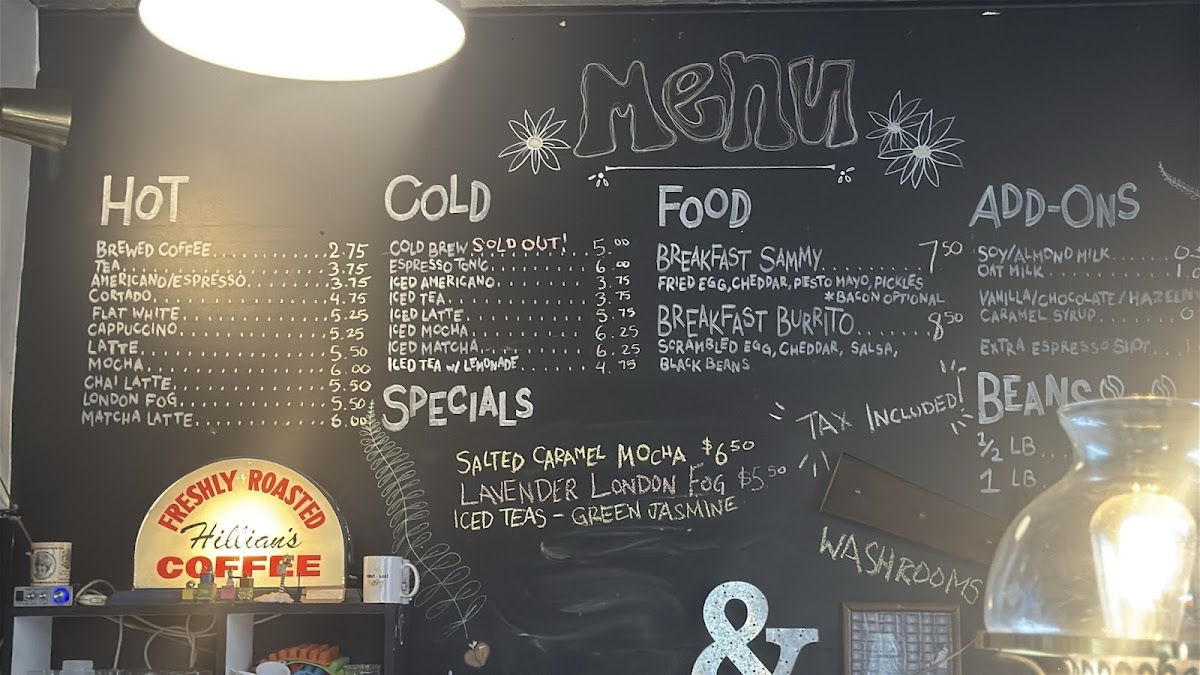 Menu
HOT
BREWED COFFEE 2.75
TEA 3.75
AMERICANO/ESPRESSO 3.75
CORTADO 4.75
FLAT WHITE 5.25
CAPPUCCINO 5.25
LATTE 5.50
MOCHA 6.00
CHAI LATTE 5.50
LONDON FOG 5.50
MATCHA LATTE 6.00
COLD
COLD BREW SOLD OUT! 5.00
ESPRESSO TONIC 6.00
ICED AMERICANO 3.75
ICED TEA 3.75
ICED LATTE 5.75
ICED MOCHA 6.25
ICED MATCHA 6.25
ICED TEA W/ LEMONADE 4.75
SPECIALS
SALTED CARAMEL MOCHA $6.50
LAVENDER LONDON FOG $5.50
ICED TEAS - GREEN JASMINE
FOOD
BREAKFAST SAMMY 7.50
FRIED EGG, CHEDDAR, PESTO MAYO, PICKLES
*BACON OPTIONAL
BREAKFAST BURRITO 8.50
SCRAMBLED EGG, CHEDDAR, SALSA,
BLACK BEANS
TAX INCLUDED!
ADD-ONS
SOY/ALMOND MILK
OAT MILK
VANILLA/CHOCOLATE/HAZELN
CARAMEL SYRUP
EXTRA ESPRESSO SHOT
BEANS
1/2 LB
1 LB
WASHROOMS
FRESHLY ROASTED
Hillian's
COFFEE
&